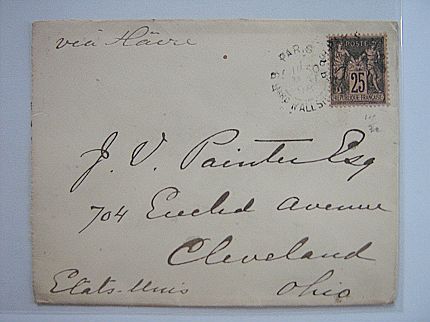 via Hâvre
PARIS
POSTE
25
REPUBLIQUE FRANÇAISE
J. V. Painter Esq
704 Euclid Avenue
Cleveland
Etats-Unis Ohio